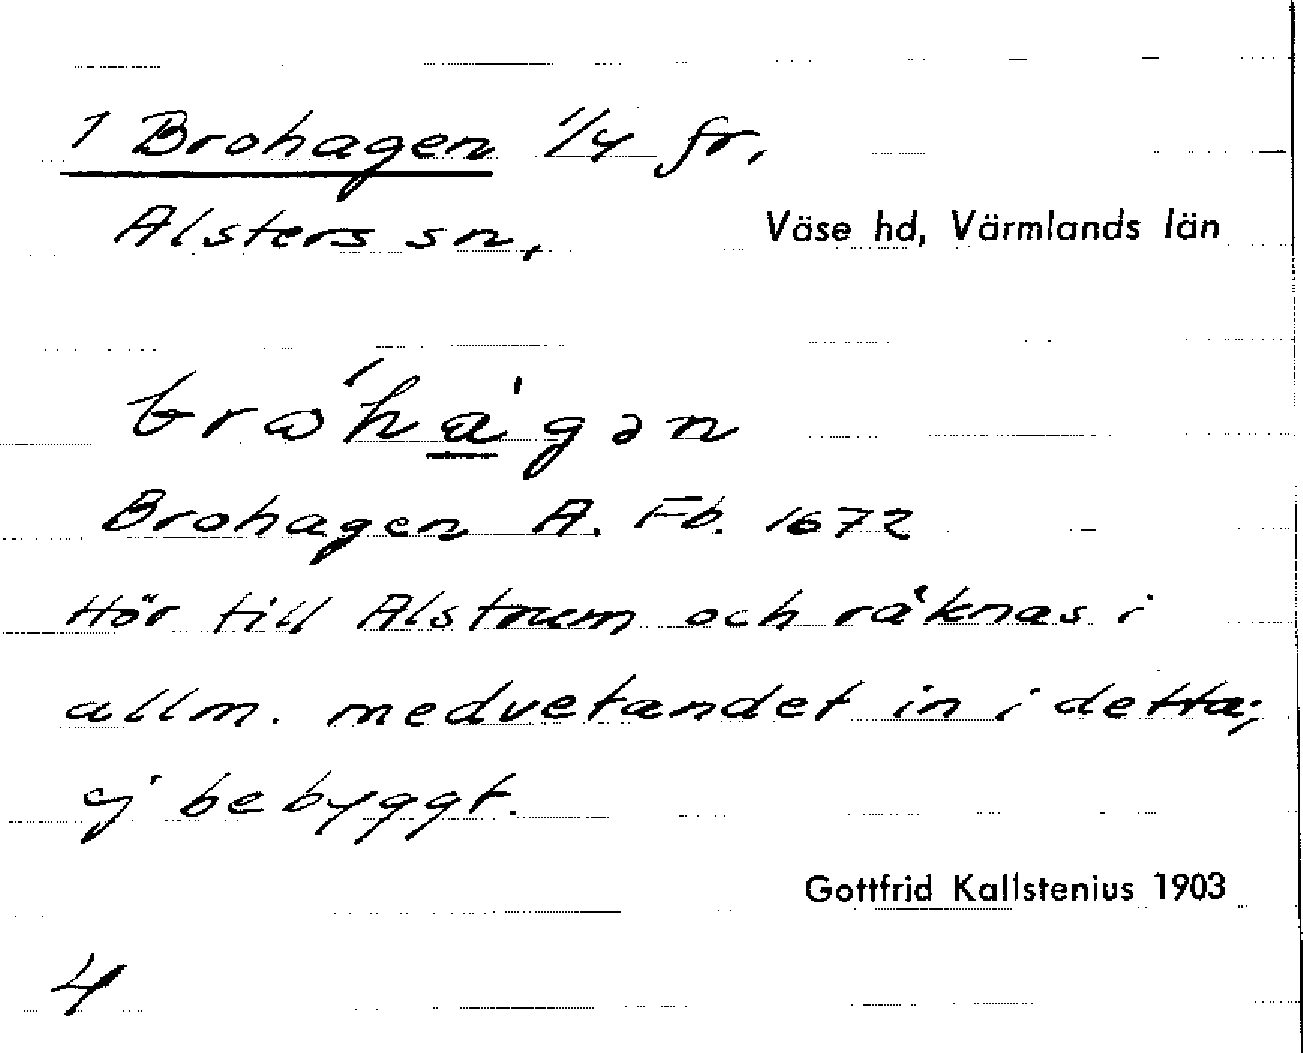 1 Brohagen 1/4 fr,
Alsters sn,
Väse hd, Värmlands län
Brohagen A. Fb. 1672
Hör till Alstrum och räknas i
allm. medvetandet in i detta;
ej bebyggt.
Gottfrid Kallstenius 1903
4